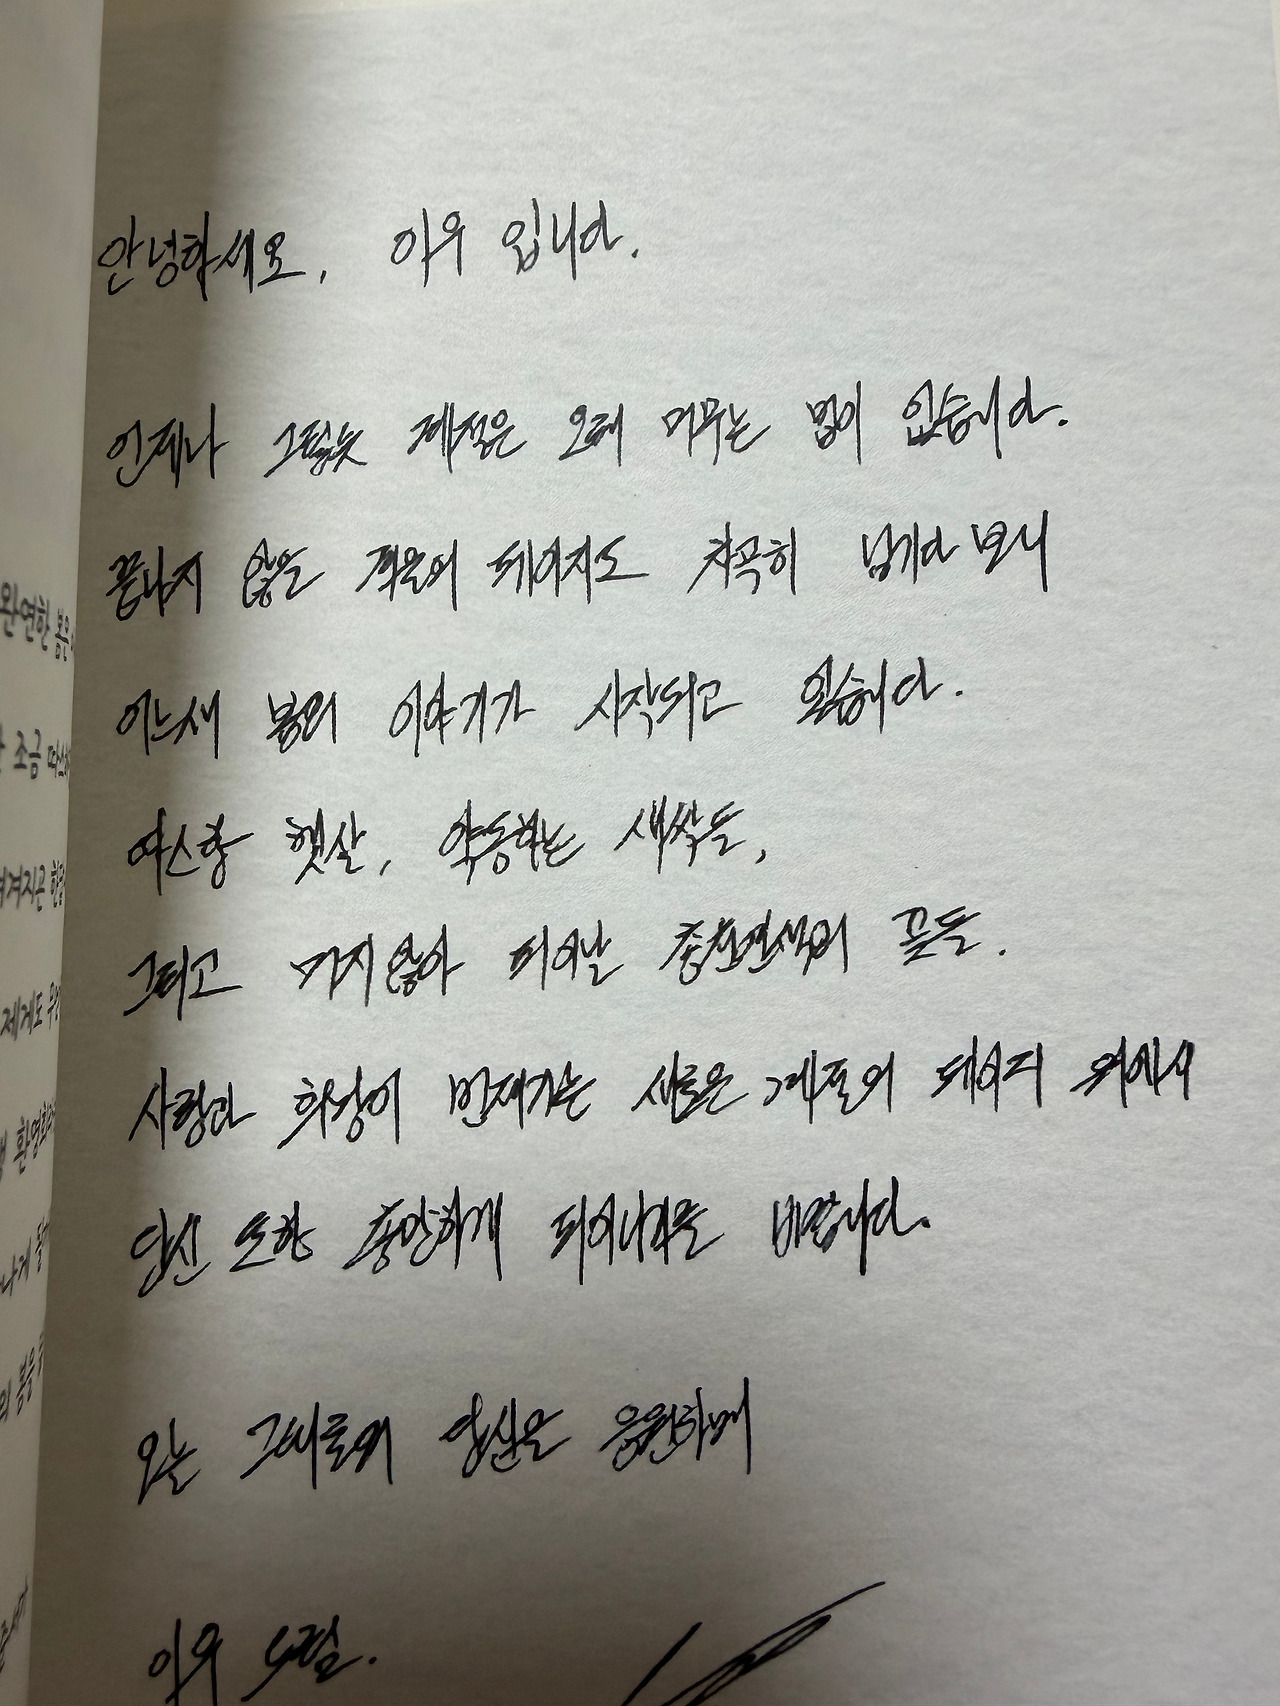 완연한 봄은
안녕하세요, 이우 입니다.
조금 따스
언제나 그렇듯 계절은 오래 머무는 법이 없습니다.
끝나지 않을 겨울의 페이지도 차곡히 넘기다 보니
어느새 봄의 이야기가 시작되고 있습니다.
제게도
따스한 햇살, 약동하는 새싹들,
그리고 머지않아 피어날 총천연색의 꽃들.
사랑과 희망이 번져가는 새로운 계절의 페이지 위에서
당신 또한 충만하게 피어나기를 바랍니다.
나게
오늘 그대로의 당신을 응원하며
이우 드림.